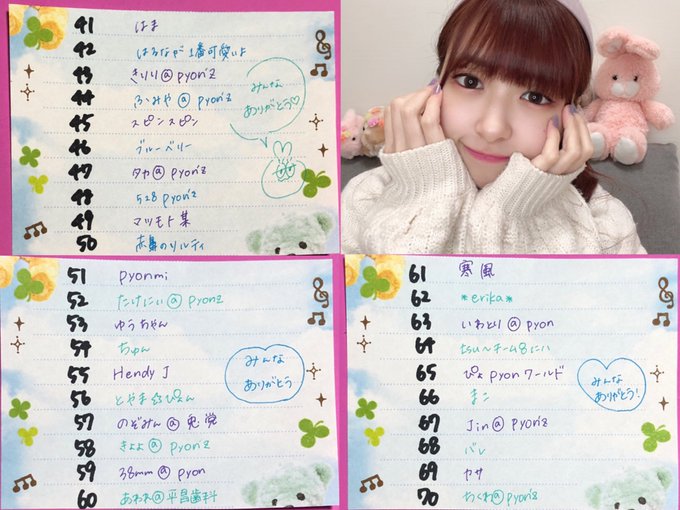 41 はま
42 はるなが1番可愛いよ
43 きりり@pyon'z
44 ふみや@pyon'z
45 スピンスピン
46 ブルーベリー
47 タカ@pyon'z
48 528 pyon'z
49 マツモト某
50 赤鼻のソルティ
みんな
ありがとう♡
51 pyonmi
52 たけにい@pyonz
53 ゆうちゃん
54 ちゅん
55 Hendy J
56 とやま ぴょん
57 のぞみん@兎党
58 きょよ@pyon'z
59 38mm@pyon
60 あわわ@平昌歯科
みんな
ありがとう
61 寒風
62 *erika*
63 いわとり@pyon
64 tsu〜チーム8に八
65 ぴょpyonワールド
66 まこ
67 Jin@pyon'z
68 バレ
69 ヤサ
70 ちくわ@pyon'z
みんな
ありがとう!